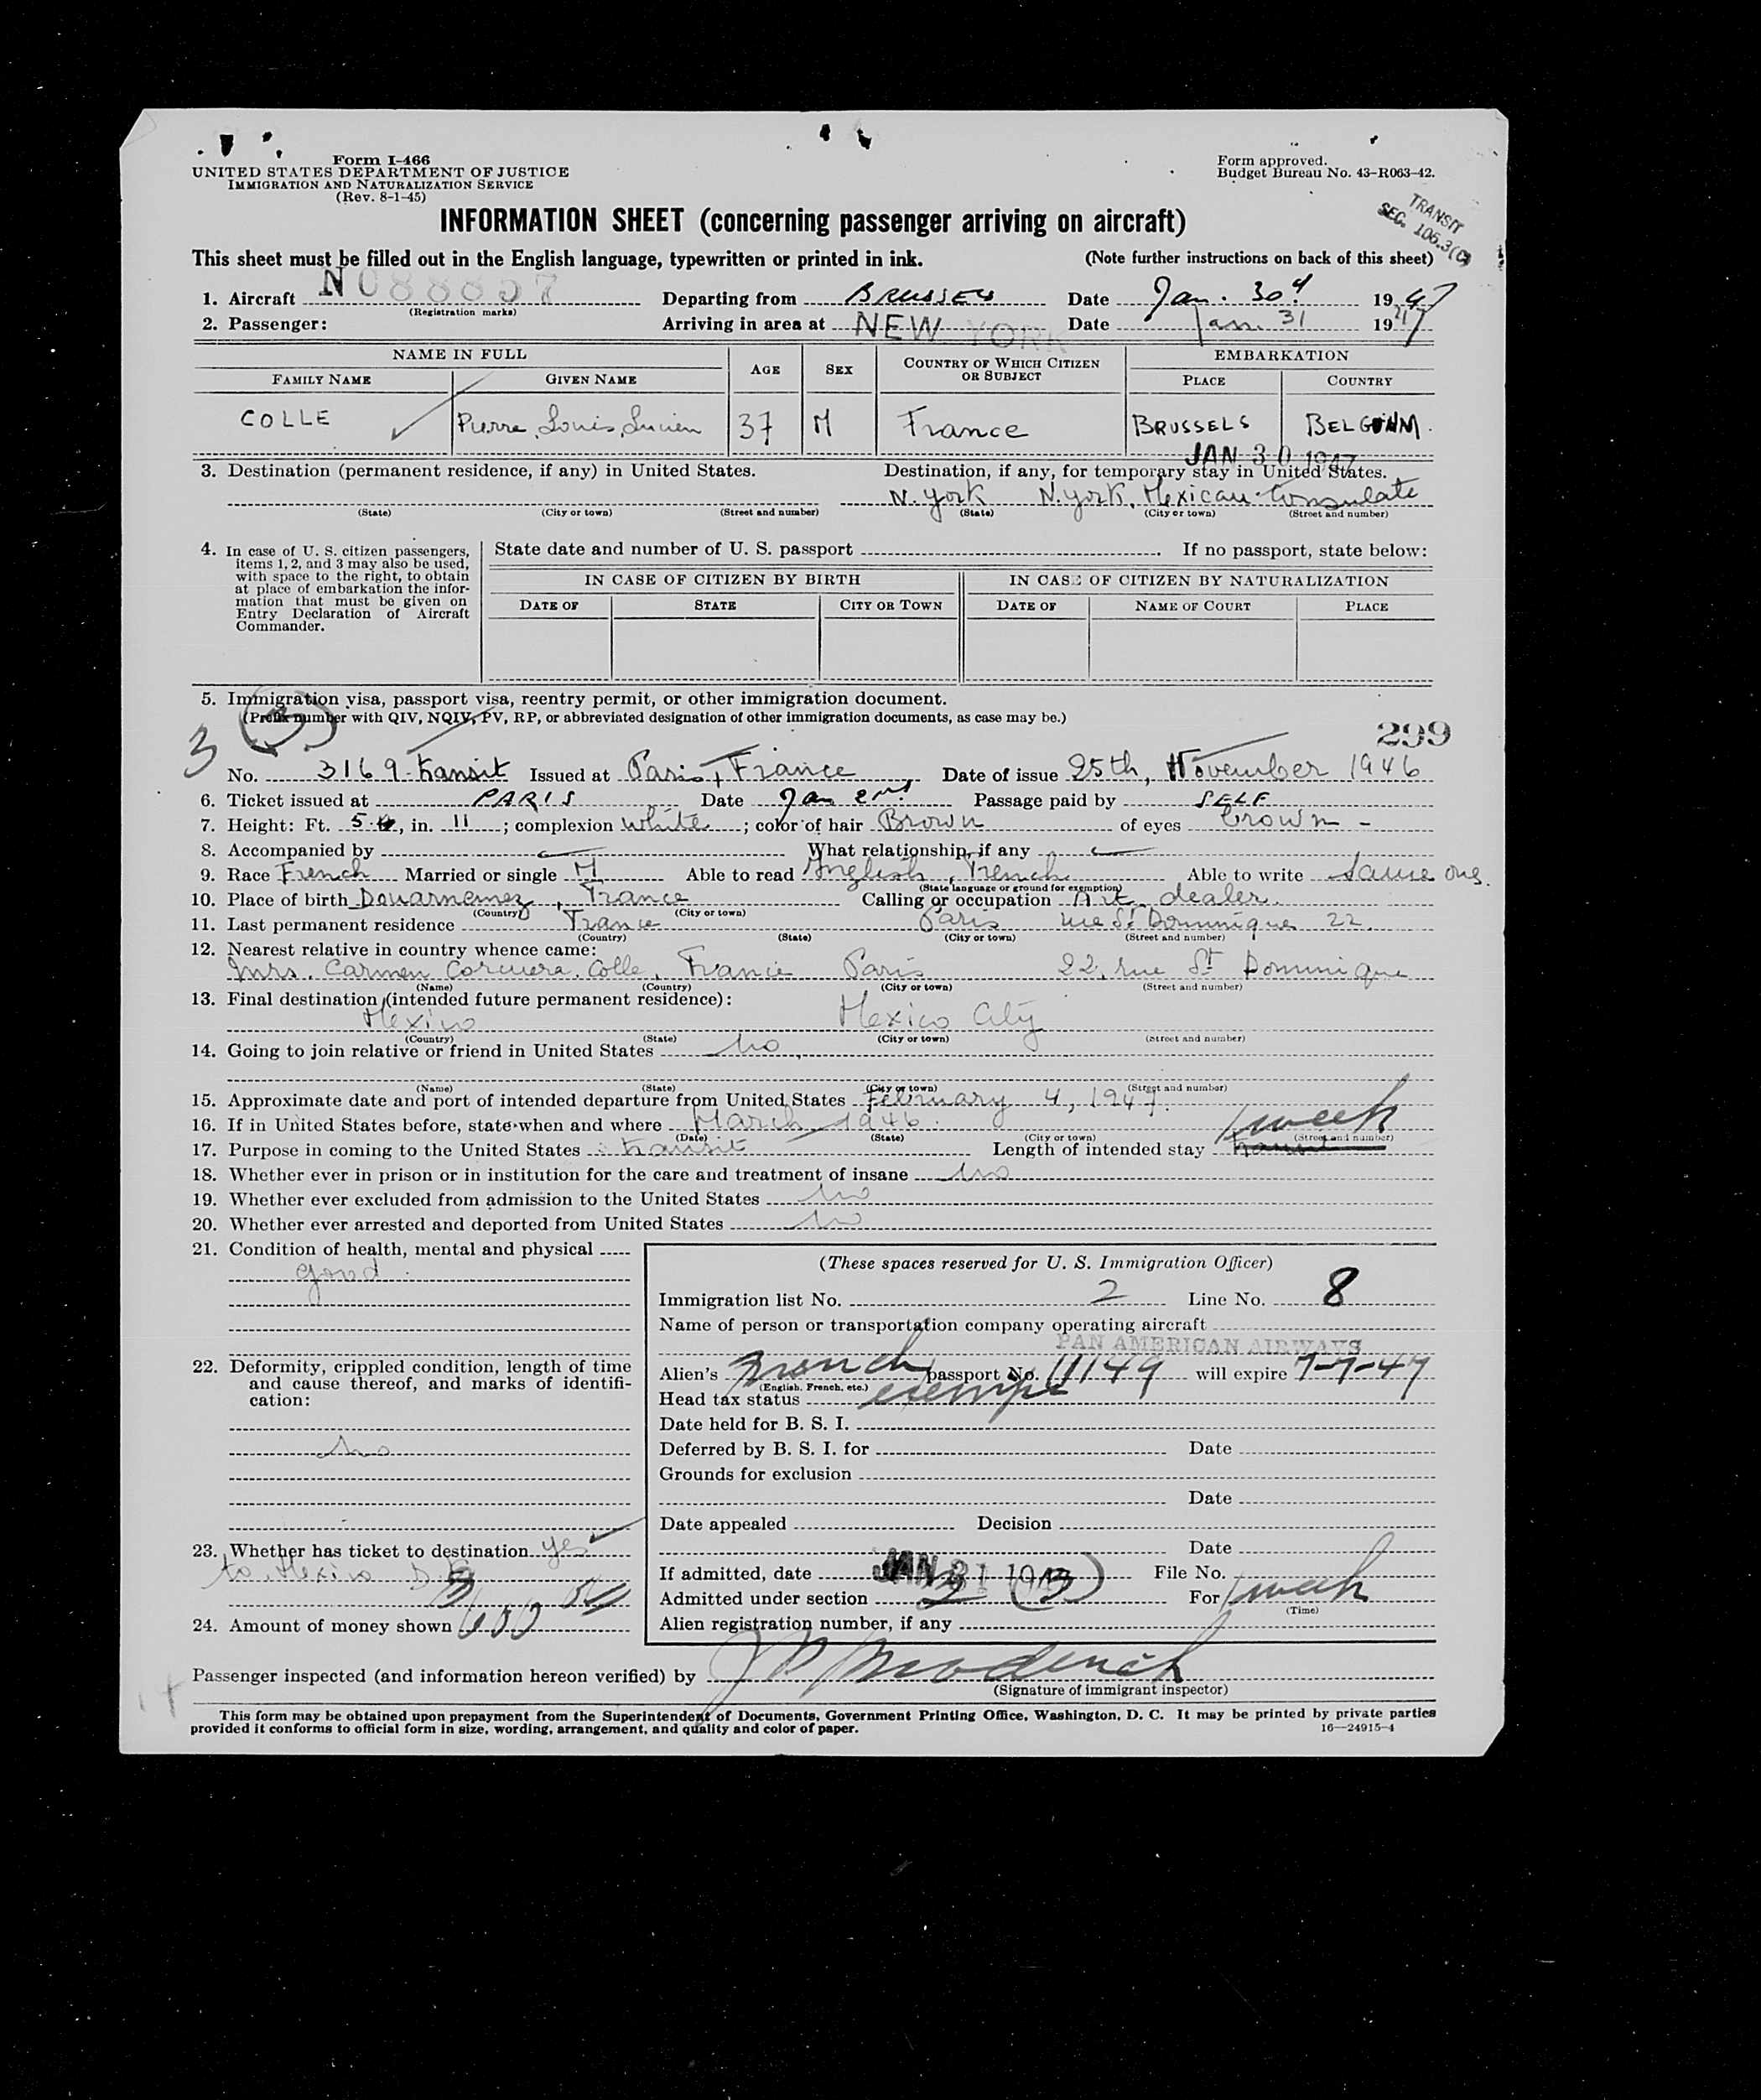 Form I-466
UNITED STATES DEPARTMENT OF JUSTICE
IMMIGRATION AND NATURALIZATION SERVICE
(Rev. 8-1-45)
Form approved.
Budget Bureau No. 43-R063-42.
TRANSIT
SEC. 106.3(C)
INFORMATION SHEET (concerning passenger arriving on aircraft)
This sheet must be filled out in the English language, typewritten or printed in ink. (Note further instructions on back of this sheet)
1. Aircraft N 088857 Departing from BRUSSELS Date Jan. 30 1947
(Registration marks)
2. Passenger: Arriving in area at NEW YORK Date Jan. 31 1947
NAME IN FULL AGE SEX COUNTRY OF WHICH CITIZEN OR SUBJECT EMBARKATION
FAMILY NAME GIVEN NAME PLACE COUNTRY
COLLE Pierre, Louis, Lucien 37 M France BRUSSELS BELGIUM.
JAN 30 1947
3. Destination (permanent residence, if any) in United States. Destination, if any, for temporary stay in United States.
N. York N. York, Mexican Consulate
(State) (City or town) (Street and number) (State) (City or town) (Street and number)
4. In case of U. S. citizen passengers, items 1, 2, and 3 may also be used, with space to the right, to obtain at place of embarkation the information that must be given on Entry Declaration of Aircraft Commander.
State date and number of U. S. passport . If no passport, state below:
IN CASE OF CITIZEN BY BIRTH IN CASE OF CITIZEN BY NATURALIZATION
DATE OF STATE CITY OR TOWN DATE OF NAME OF COURT PLACE
5. Immigration visa, passport visa, reentry permit, or other immigration document.
(Prefix number with QIV, NQIV, PV, RP, or abbreviated designation of other immigration documents, as case may be.)
(3)
3
299
No. 3169 transit Issued at Paris, France Date of issue 25th, November 1946
6. Ticket issued at PARIS Date Jan 2nd Passage paid by SELF
7. Height: Ft. 5, in. 11; complexion white; color of hair Brown of eyes brown
8. Accompanied by What relationship, if any
9. Race French Married or single M Able to read English, French Able to write same ones.
(State language or ground for exemption)
10. Place of birth Douarnenez, France Calling or occupation Art dealer.
(Country) (City or town)
11. Last permanent residence France Paris rue St Dominique 22.
(Country) (State) (City or town) (Street and number)
12. Nearest relative in country whence came:
Mrs. Carmen Corcuera Colle, France Paris 22, rue St Dominique
(Name) (Country) (City or town) (Street and number)
13. Final destination (intended future permanent residence):
Mexico Mexico City
(Country) (State) (City or town) (Street and number)
14. Going to join relative or friend in United States no,
(Name) (State) (City or town) (Street and number)
15. Approximate date and port of intended departure from United States February 4, 1947.
16. If in United States before, state when and where March 1946.
(Date) (State) (City or town) (Street and number)
17. Purpose in coming to the United States transit Length of intended stay 1 week
18. Whether ever in prison or in institution for the care and treatment of insane no
19. Whether ever excluded from admission to the United States no
20. Whether ever arrested and deported from United States no
21. Condition of health, mental and physical
good.
22. Deformity, crippled condition, length of time and cause thereof, and marks of identification:
no
23. Whether has ticket to destination yes
to Mexico D.F.
24. Amount of money shown 600
(These spaces reserved for U. S. Immigration Officer)
Immigration list No. 2 Line No. 8
Name of person or transportation company operating aircraft
PAN AMERICAN AIRWAYS
Alien's French passport No. 11149 will expire 7-7-47
(English, French, etc.)
Head tax status exempt
Date held for B. S. I.
Deferred by B. S. I. for Date
Grounds for exclusion
Date
Date appealed Decision
Date
If admitted, date JAN 31 File No.
Admitted under section 3 (3) For 1 week
(Time)
Alien registration number, if any
Passenger inspected (and information hereon verified) by
(Signature of immigrant inspector)
This form may be obtained upon prepayment from the Superintendent of Documents, Government Printing Office, Washington, D. C. It may be printed by private parties
provided it conforms to official form in size, wording, arrangement, and quality and color of paper. 16—24915-4